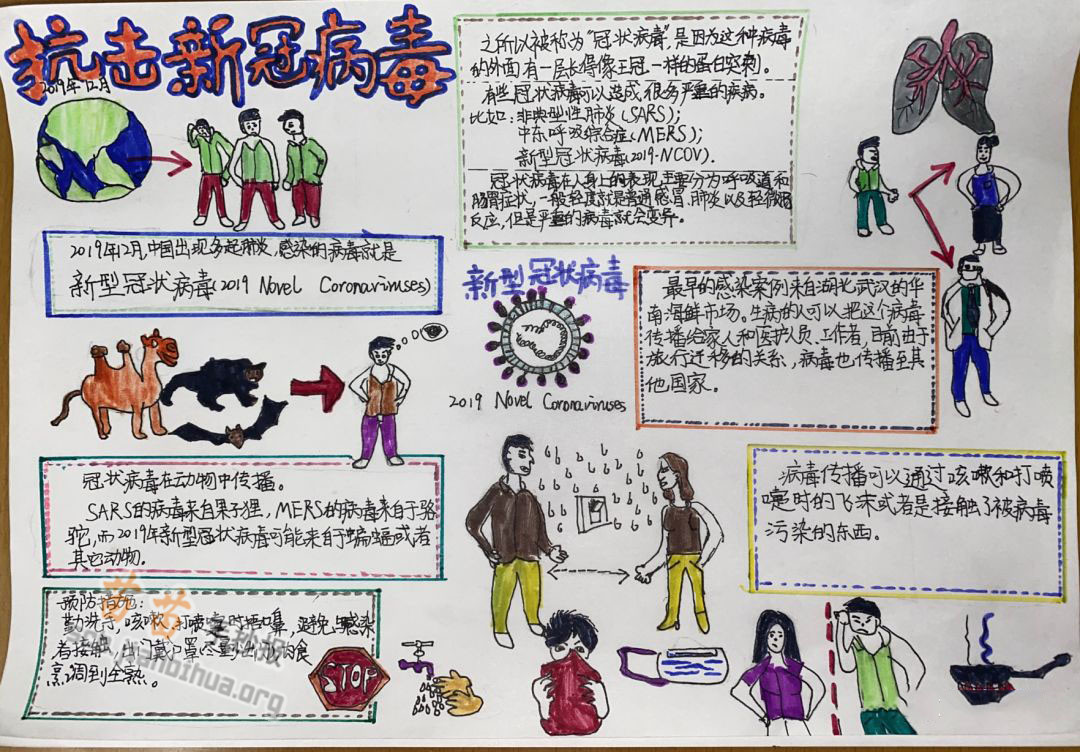 抗击新冠病毒
2019年12月
2019年12月,中国出现多起肺炎,感染的病毒就是
新型冠状病毒(2019 Novel Coronaviruses)
之所以被称为“冠状病毒”,是因为这种病毒
的外面有一层长得像王冠一样的蛋白突刺。
有些冠状病毒可以造成很多严重的疾病。
比如:非典型性肺炎(SARS);
中东呼吸综合症(MERS);
新型冠状病毒(2019-NCOV).
冠状病毒在人身上的表现,主要分为呼吸道和
肠胃症状,一般轻度就是普通感冒,肺炎以及轻微肠
反应,但是严重的病毒就会变异。
新型冠状病毒
2019 Novel Coronaviruses
最早的感染案例来自湖北武汉的华
南海鲜市场。生病的人可以把这个病毒
传播给家人和医护人员.工作者,目前由于
旅行迁移的关系,病毒也传播至其
他国家。
冠状病毒在动物中传播。
SARS的病毒来自果子狸,MERS的病毒来自于骆
驼,而2019年新型冠状病毒可能来于蝙蝠或者
其它动物.
病毒传播可以通过咳嗽和打喷
嚏时的飞沫或者是接触了被病毒
污染的东西.
预防措施:
勤洗手,咳嗽,打喷嚏时捂口鼻,避免与感染
者接触,出门戴口罩
烹调到全熟.
STOP